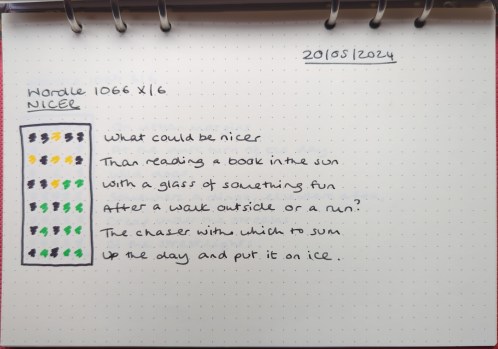 20/05/2024
Wordle 1066 X/6
NICER
What could be nicer
Than reading a book in the sun
With a glass of something fun
After a walk outside or a run?
The chaser with which to sum
Up the day and put it on ice.